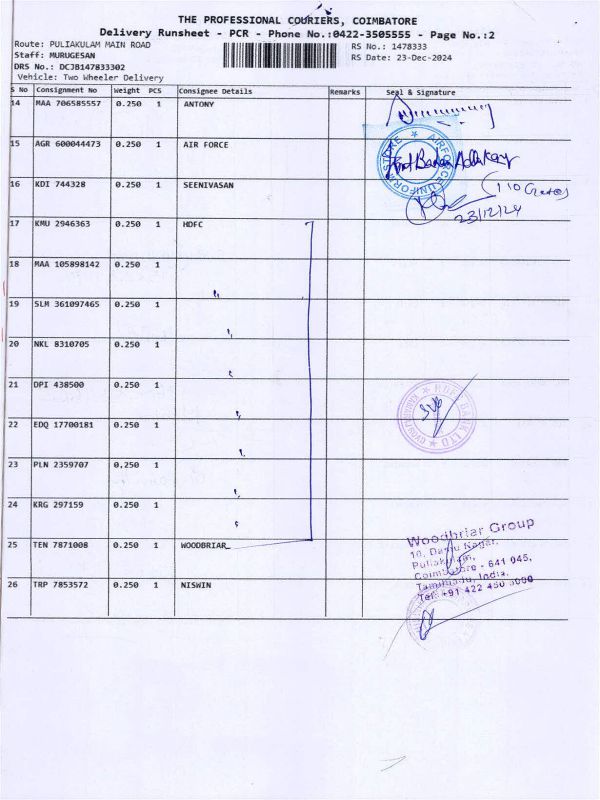 THE PROFESSIONAL COURIERS, COIMBATORE
Delivery Runsheet - PCR - Phone No.:0422-3505555 - Page No.:2
Route: PULIAKULAM MAIN ROAD
Staff: MURUGESAN
DRS No.: DCJB147833302
Vehicle: Two Wheeler Delivery
RS No.: 1478333
RS Date: 23-Dec-2024
S No Consignment No Weight PCS Consignee Details Remarks Seal & Signature
14 MAA 706585557 0.250 1 ANTONY
15 AGR 600044473 0.250 1 AIR FORCE
AIRFORCE UNIFORM STORE
16 KDI 744328 0.250 1 SEENIVASAN
23/12/24
17 KMU 2946363 0.250 1 HDFC
18 MAA 105898142 0.250 1
19 SLM 361097465 0.250 1
20 NKL 8310705 0.250 1
21 DPI 438500 0.250 1
HDFC BANK LTD
22 EDQ 17700181 0.250 1
23 PLN 2359707 0.250 1
24 KRG 297159 0.250 1
25 TEN 7871008 0.250 1 WOODBRIAR
Woodbriar Group
Puliakulam,
Coimbatore - 641 045,
Tamilnadu, India.
26 TRP 7853572 0.250 1 NISWIN